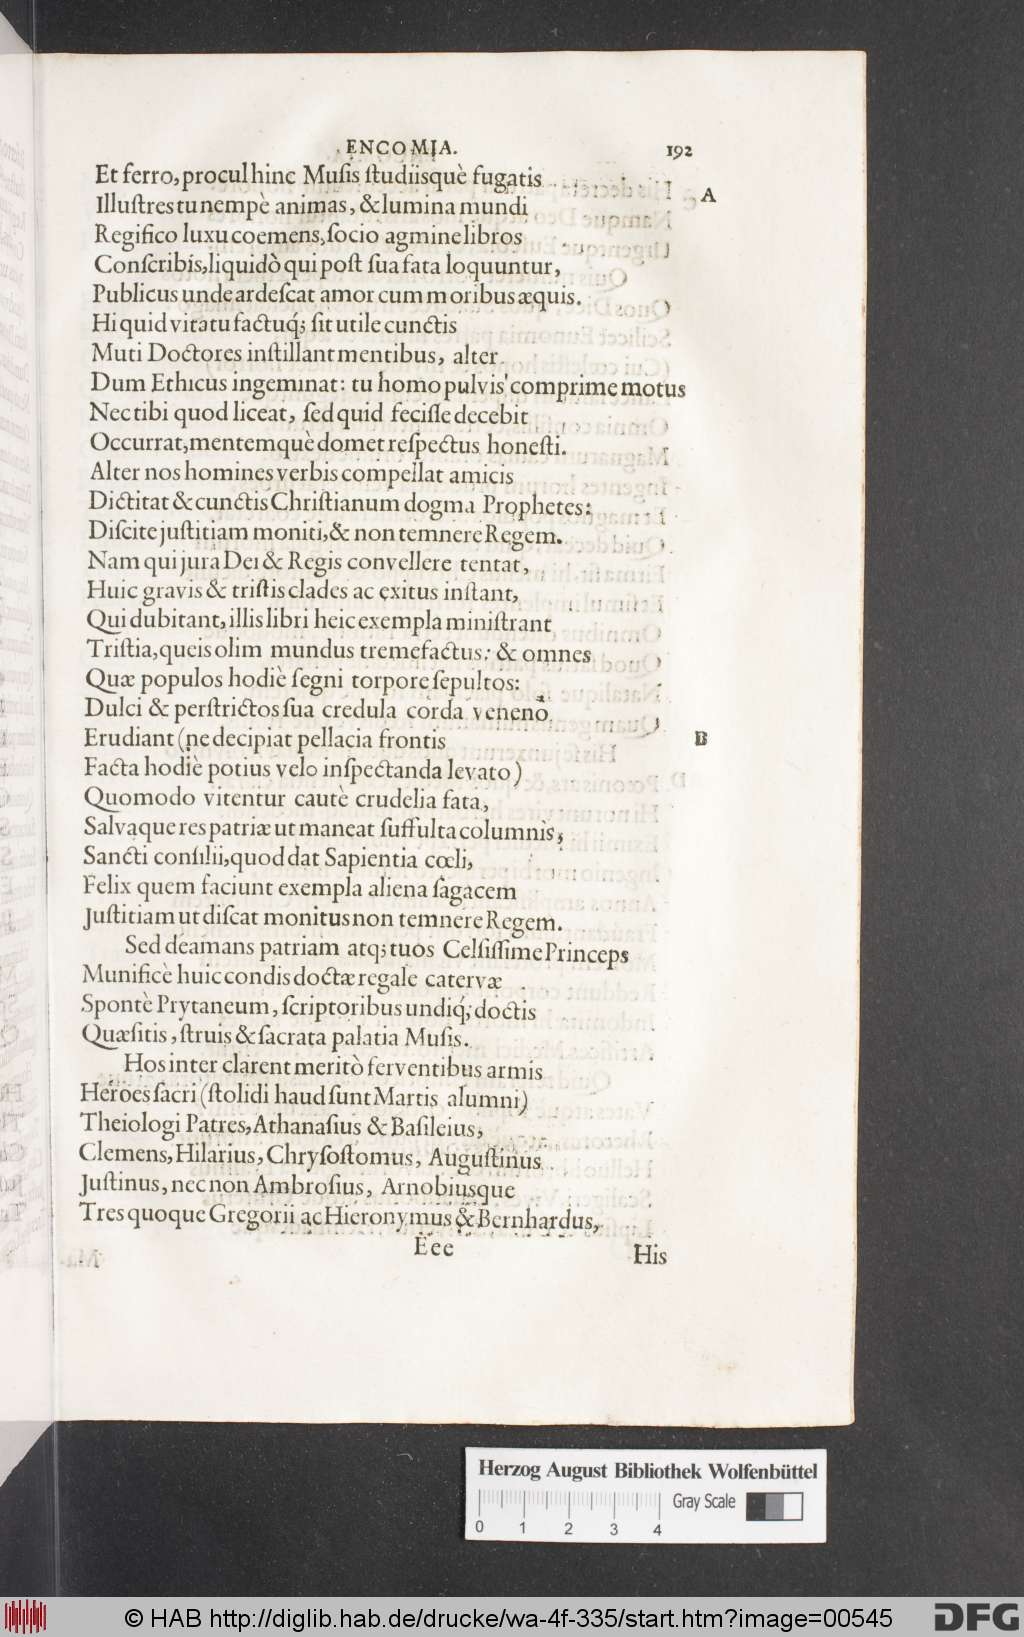 ENCOMIA. 192
Et ferro, procul hinc Muſis ſtudiisquè fugatis
A
Illuſtres tu nempè animas, & lumina mundi
Regifico luxu coemens, ſocio agmine libros
Conſcribis, liquidò qui poſt ſua fata loquuntur,
Publicus unde ardeſcat amor cum moribus æquis.
Hi quid vitatu factuq́; ſit utile cunctis
Muti Doctores inſtillant mentibus, alter
Dum Ethicus ingeminat: tu homo pulvis comprime motus
Nec tibi quod liceat, ſed quid feciſſe decebit
Occurrat, mentemquè domet reſpectus honeſti.
Alter nos homines verbis compellat amicis
Dictitat & cunctis Chriſtianum dogma Prophetes:
Diſcite juſtitiam moniti, & non temnere Regem.
Nam qui jura Dei & Regis convellere tentat,
Huic gravis & triſtis clades ac exitus inſtant,
Qui dubitant, illis libri heic exempla miniſtrant
Triſtia, queis olim mundus tremefactus: & omnes
Quæ populos hodiè ſegni torpore ſepultos:
Dulci & perſtrictos ſua credula corda venenò
Erudiant (ne decipiat pellacia frontis
B
Facta hodiè potius velo inſpectanda levato)
Quomodo vitentur cautè crudelia fata,
Salvaque res patriæ ut maneat ſuffulta columnis,
Sancti conſilii, quod dat Sapientia cœli,
Felix quem faciunt exempla aliena ſagacem
Juſtitiam ut diſcat monitus non temnere Regem.
Sed deamans patriam atq; tuos Celſiſſime Princeps
Munificè huic condis doctæ regale catervæ
Spontè Prytaneum, ſcriptoribus undiq́; doctis
Quæſitis, ſtruis & ſacrata palatia Muſis.
Hos inter clarent meritò ferventibus armis
Heroes ſacri (ſtolidi haud ſunt Martis alumni)
Theiologi Patres, Athanaſius & Baſileius,
Clemens, Hilarius, Chryſoſtomus, Auguſtinus
Juſtinus, nec non Ambroſius, Arnobiusque
Tres quoque Gregorii ac Hieronymus & Bernhardus,
Eee His
Herzog August Bibliothek Wolfenbüttel
Gray Scale
0 1 2 3 4
© HAB http://diglib.hab.de/drucke/wa-4f-335/start.htm?image=00545 DFG